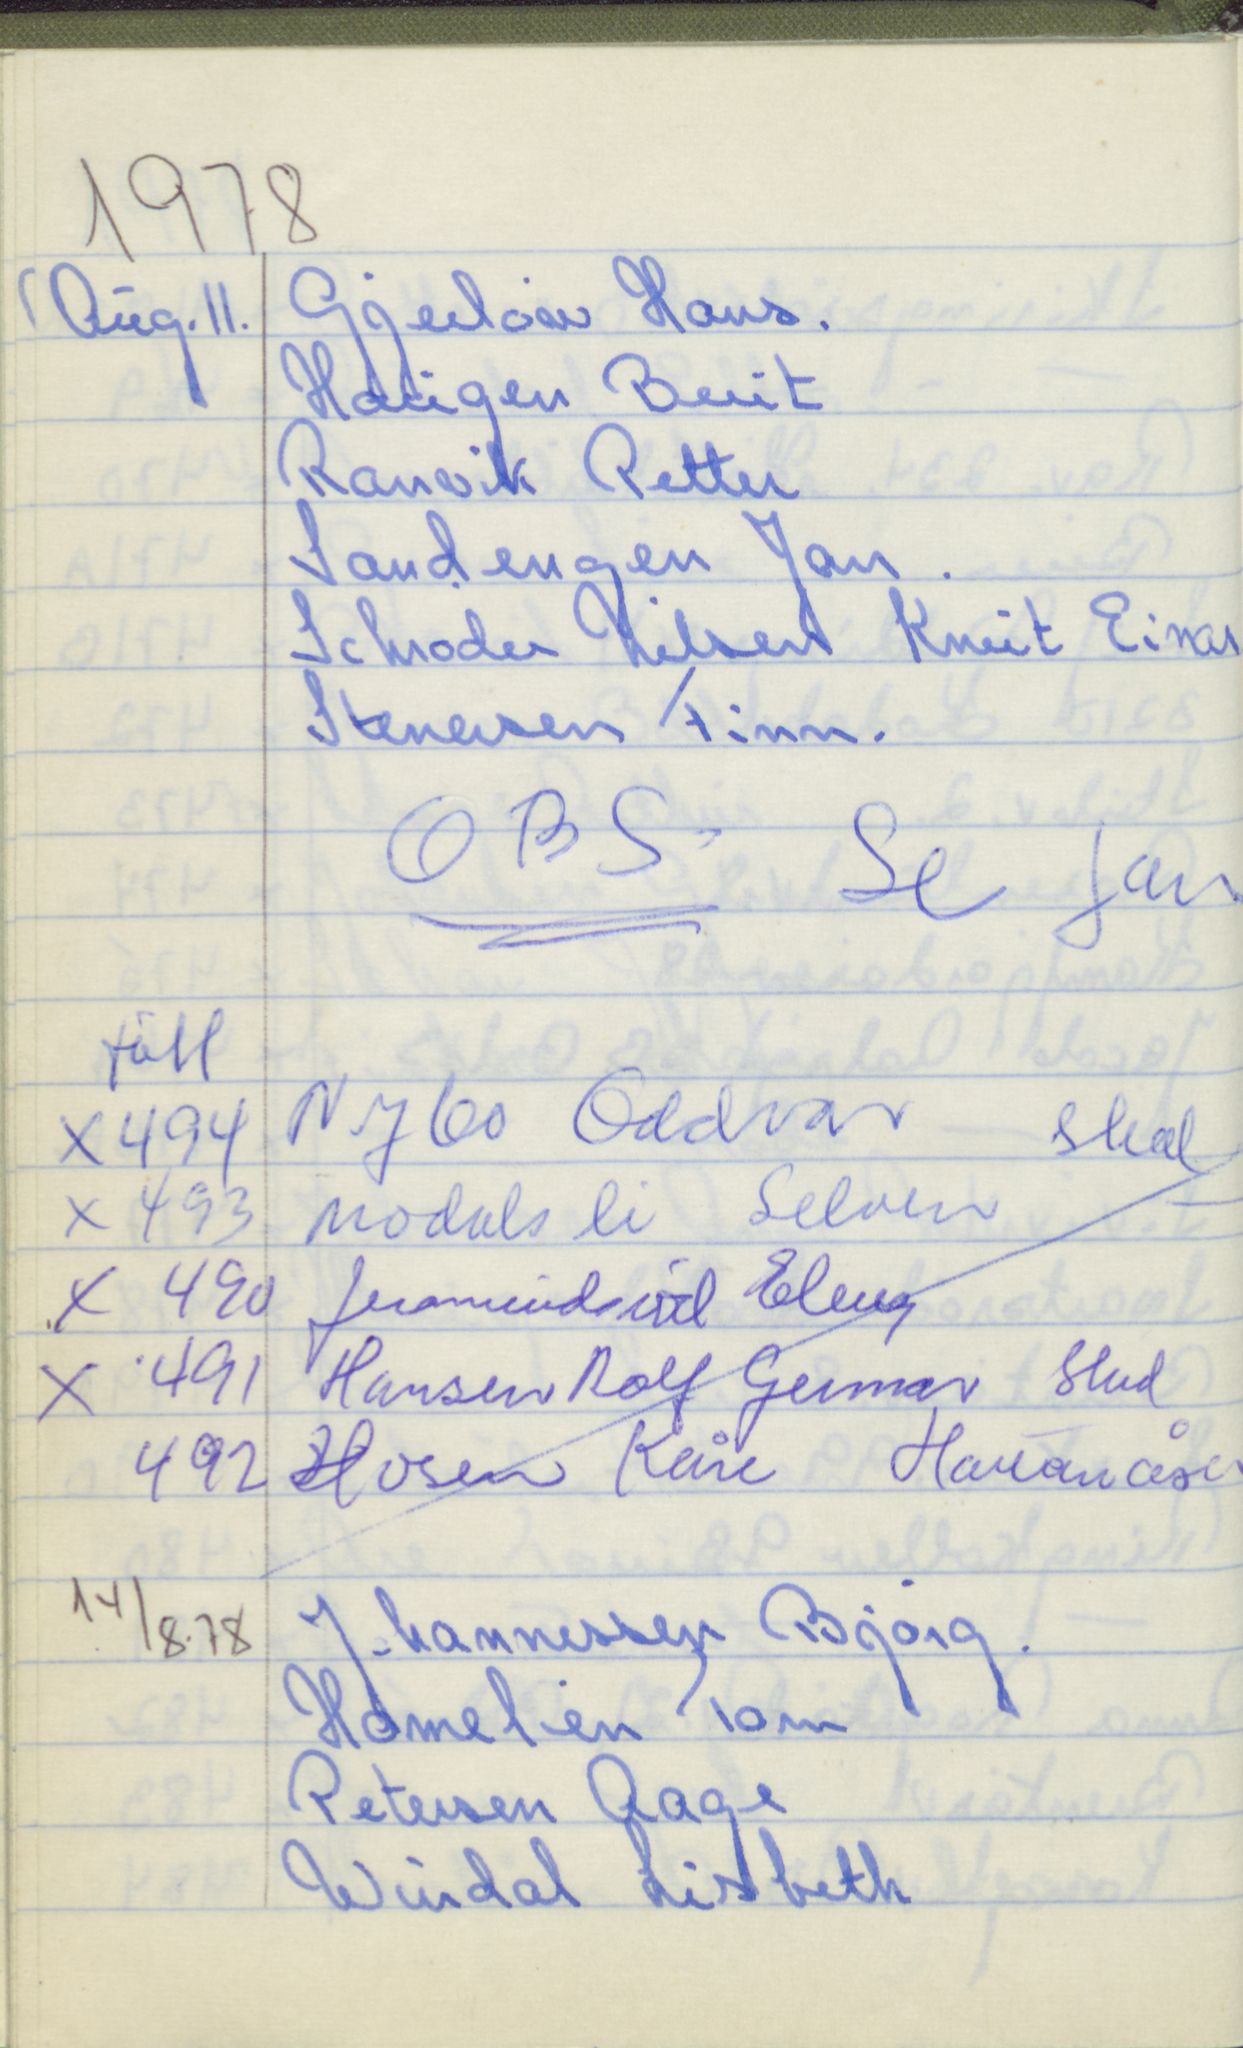 1978
Aug. 11. Gjerløw Hans.
Haugen Berit
Ranvik Petter
Sandengen Jan.
Schrøder Nilsen Knut Einar
Stenersen Finn.
OBS. Se Jan.
fått
X 494 Nybo Oddvar Skal
X 493 Selven
X 490
X 491 Hansen Rolf Germar Skal
492 Hosen Kåre
14/8.78 Johannessen Bjørg.
Homelien Tom
Petersen Aage
Windal Lisbeth